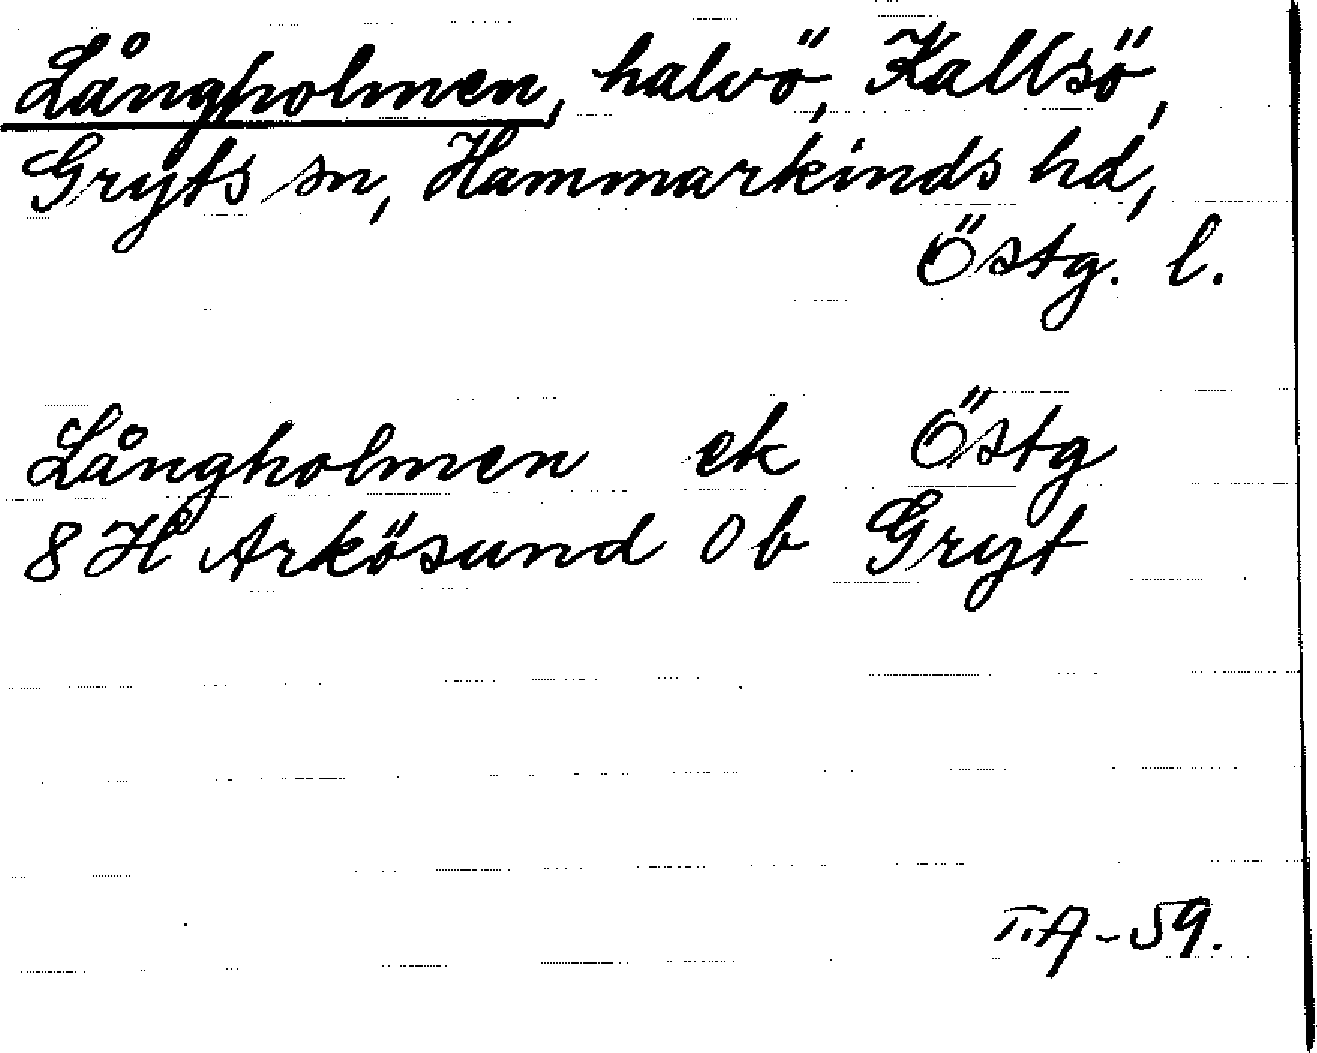 Långholmen, halvö, Kallsö,
Gryts sn, Hammarkinds hd,
Östg. l.
Långholmen ek Östg
8 H Arkösund 0 b Gryt
T.A-59.